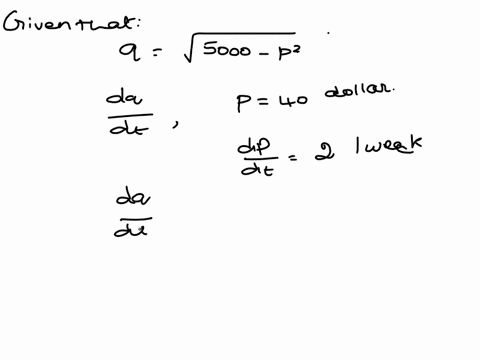 Given that:
q = √5000 - p²
dq/dt , P = 40 dollar.
dp/dt = 2 / week
dq/dt